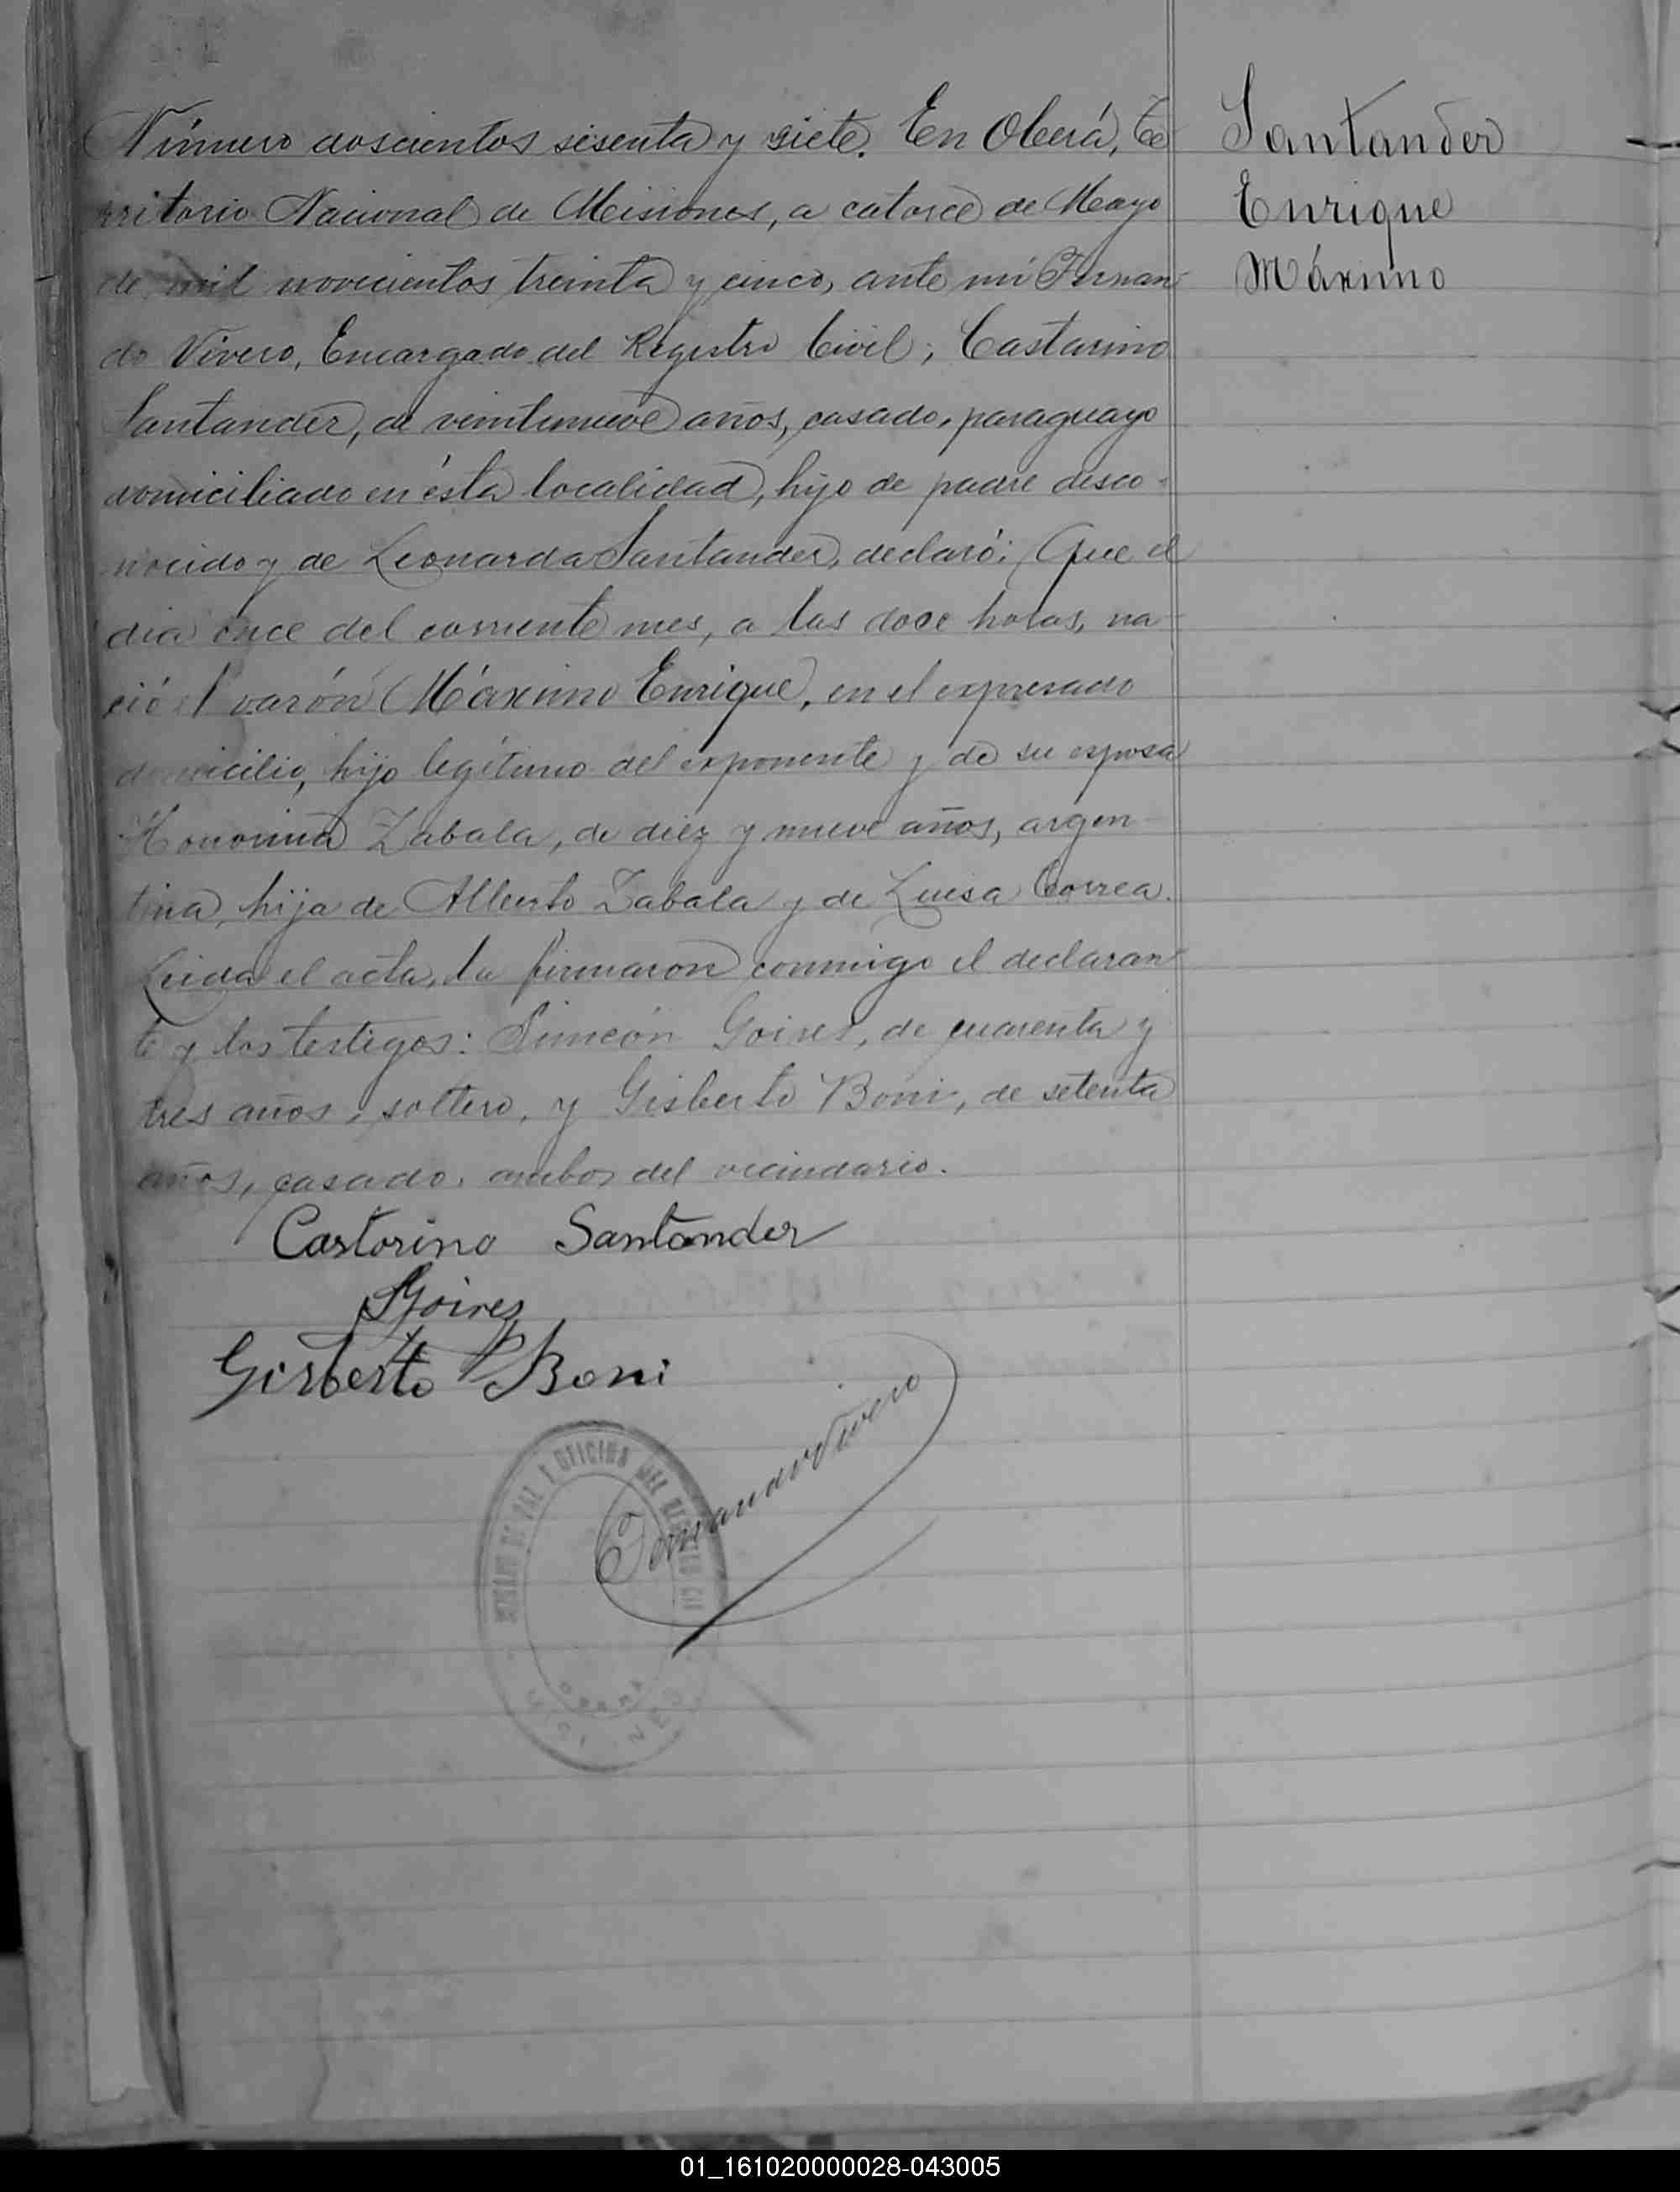 Número doscientos sesenta y siete. En Oberá, Te
rritorio Nacional de Misiones, a catorce de Mayo
de mil novecientos treinta y cinco, ante mi Fernan-
do Vivero, Encargado del Registro Civil; Castorino
Santander, de veintinueve años, casado, paraguayo
domiciliado en ésta localidad, hijo de padre desco-
nocido y de Leonarda Santander, declaró: Que el
día once del corriente mes, a las doce horas, na-
ció el varón Máximo Enrique, en el expresado
domicilio, hijo legítimo del exponente y de su esposa
Honorina Zabala, de diez y nueve años, argen-
tina, hija de Alberto Zabala y de Luisa Correa.
Leida el acta, la firmaron conmigo el declaran-
te y los testigos: Simeón Goires, de cuarenta y
tres años, soltero, y Gisberto Boni, de setenta
años, casado, ambos del vecindario.
Castorino Santander
SGoires
Gisberto Boni
Fernando Vivero
JUZGADO DE PAZ Y OFICINA DEL REGISTRO CIVIL
OBERA
MISIONES
Santander
Enrique
Máximo
01_161020000028-043005